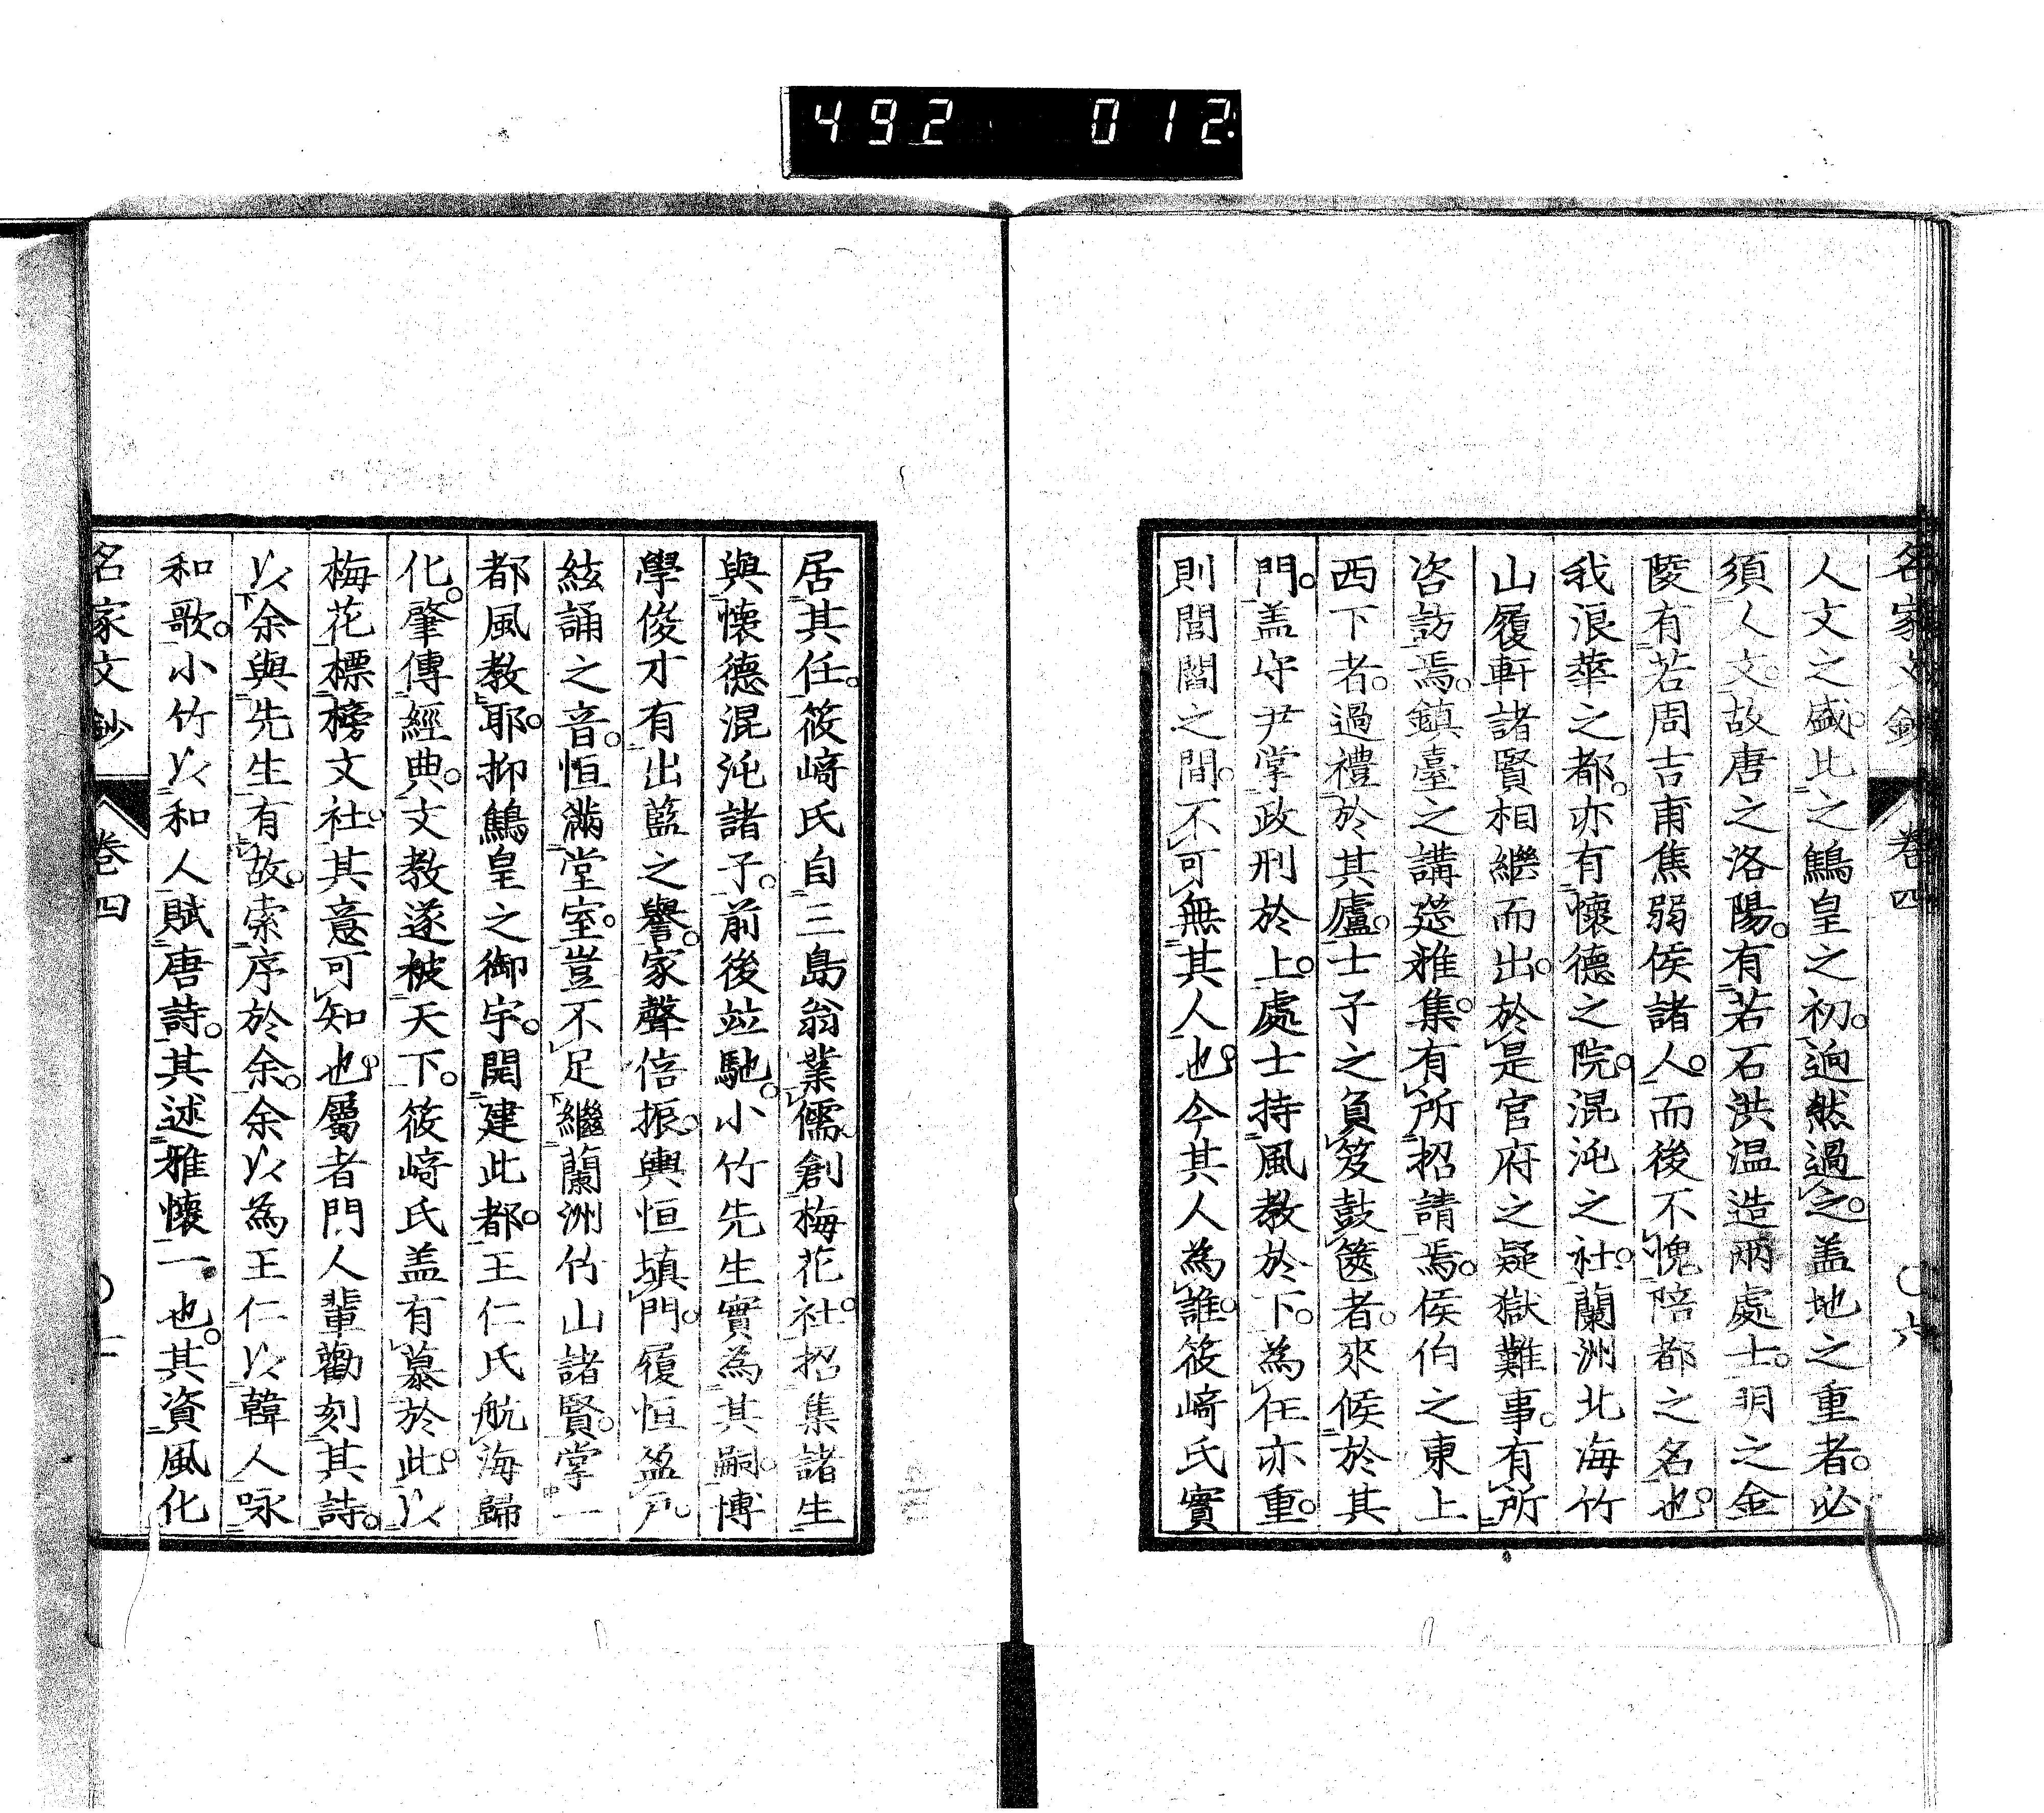 492 012
名家文鈔 卷四 〇六
人文之盛。比之鷦皇之初。逈然過之。盖地之重者。必
須人文。故唐之洛陽。有若石洪温造兩處士。明之金
陵有若周吉甫焦弱侯諸人。而後不愧陪都之名也。
我浪華之都。亦有懷德之院。混沌之社。蘭洲北海竹
山履軒諸賢相繼而出。於是官府之疑獄難事。有所
咨訪焉。鎮臺之講筵雅集。有所招請焉。侯伯之東上
西下者。過禮於其廬。士子之負笈鼓篋者。來候於其
門。盖守尹掌政刑於上。處士持風教於下。為任亦重。
則閭閻之間。不可無其人也。今其人為誰。筱﨑氏實
居其任。筱﨑氏自三島翁業儒。創梅花社。招集諸生
與懷德混沌諸子。前後竝馳。小竹先生實為其嗣。博
學俊才有出藍之譽。家聲倍振。輿恒填門。履恒盈戸。
絃誦之音。恒滿堂室。豈不足繼蘭洲竹山諸賢。掌一
都風教耶。抑鷦皇之御宇。開建此都。王仁氏航海歸
化。肇傳經典。文教遂被天下。筱﨑氏盖有慕於此。以
梅花標榜文社。其意可知也。屬者門人輩勸刻其詩。
以余與先生有故。索序於余。余以為王仁以韓人咏
和歌。小竹以和人賦唐詩。其述雅懷一也。其資風化
名家文鈔 卷四